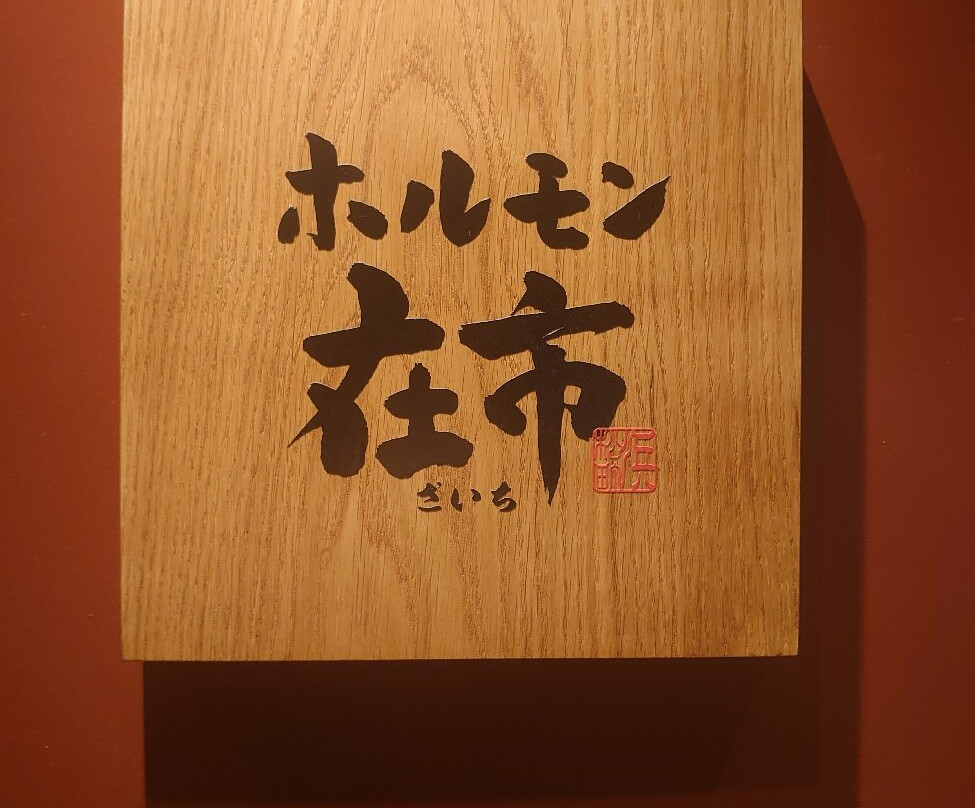 ホルモン
在市
ざいち